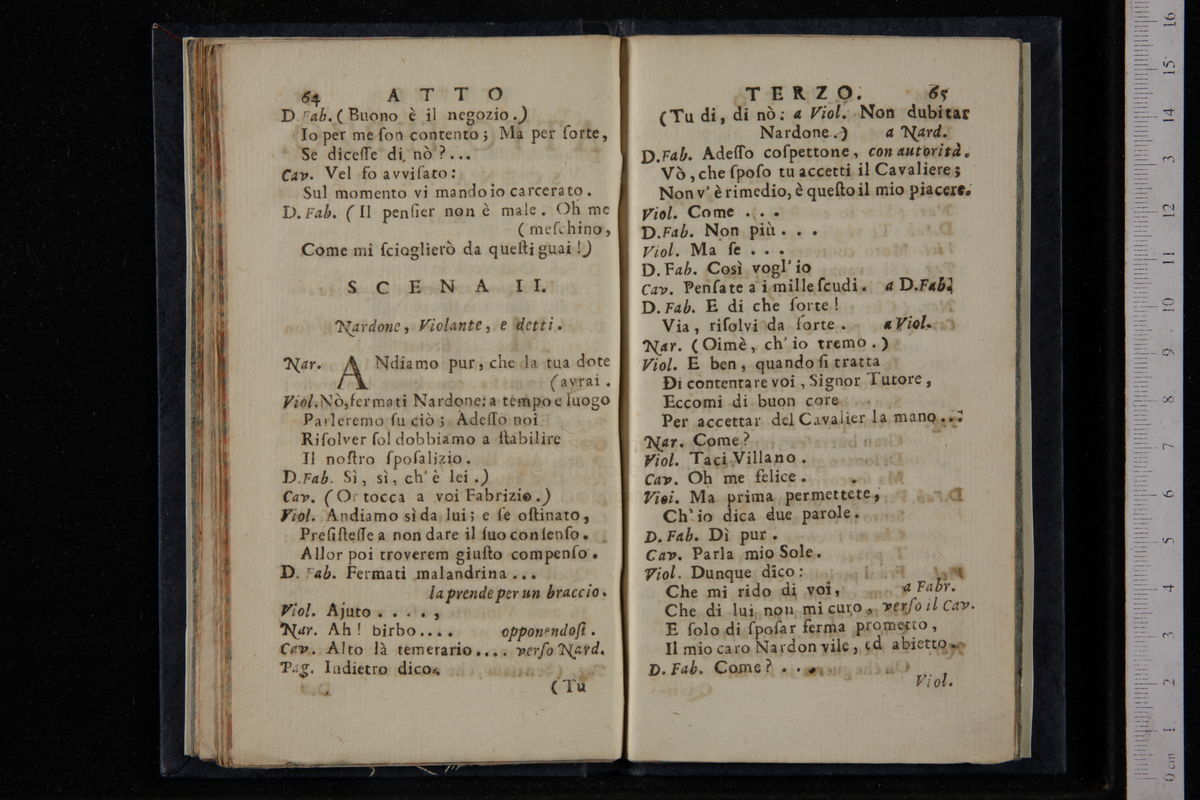 64 ATTO
D. Fab. (Buono è il negozio.)
Io per me ſon contento; Ma per ſorte,
Se diceſſe di nò?...
Cav. Vel fo avviſato:
Sul momento vi mando io carcerato.
D. Fab. (Il penſier non è male. Oh me
(meſchino,
Come mi ſcioglierò da queſti guai!)
SCENA II.
Nardone, Violante, e detti.
Nar. ANdiamo pur, che la tua dote
(avrai.
Viol. Nò, fermati Nardone: a tempo e luogo
Parleremo ſu ciò; Adeſſo noi
Riſolver ſol dobbiamo a ſtabilire
Il noſtro ſpoſalizio.
D. Fab. Sì, sì, ch'è lei.)
Cav. (Or tocca a voi Fabrizio.)
Viol. Andiamo sì da lui; e ſe oſtinato,
Preſiſteſſe a non dare il ſuo conſenſo.
Allor poi troverem giuſto compenſo.
D. Fab. Fermati malandrina...
la prende per un braccio.
Viol. Ajuto.....,
Nar. Ah! birbo.... opponendoſi.
Cav. Alto là temerario.... verſo Nard.
Pag. Indietro dico.
(Tu
TERZO. 65
(Tu di, di nò: a Viol. Non dubitar
Nardone.) a Nard.
D. Fab. Adeſſo coſpettone, con autorità.
Vò, che ſpoſo tu accetti il Cavaliere;
Non v'è rimedio, è queſto il mio piacere.
Viol. Come...
D. Fab. Non più...
Viol. Ma ſe...
D. Fab. Così vogl'io
Cav. Penſate a i mille ſcudi. a D. Fab.
D. Fab. E di che ſorte!
Via, riſolvi da ſorte. a Viol.
Nar. (Oimè, ch'io tremo.)
Viol. E ben, quando ſi tratta
Di contentare voi, Signor Tutore,
Eccomi di buon core
Per accettar del Cavalier la mano...
Nar. Come?
Viol. Taci Villano.
Cav. Oh me felice.
Viol. Ma prima permettete,
Ch'io dica due parole.
D. Fab. Dì pur.
Cav. Parla mio Sole.
Viol. Dunque dico:
Che mi rido di voi, a Fabr.
Che di lui non mi curo, verſo il Cav.
E ſolo di ſpoſar ferma prometto,
Il mio caro Nardon vile, ed abietto.
D. Fab. Come?...
Viol.
0 cm 1 2 3 4 5 6 7 8 9 10 11 12 13 14 15 16